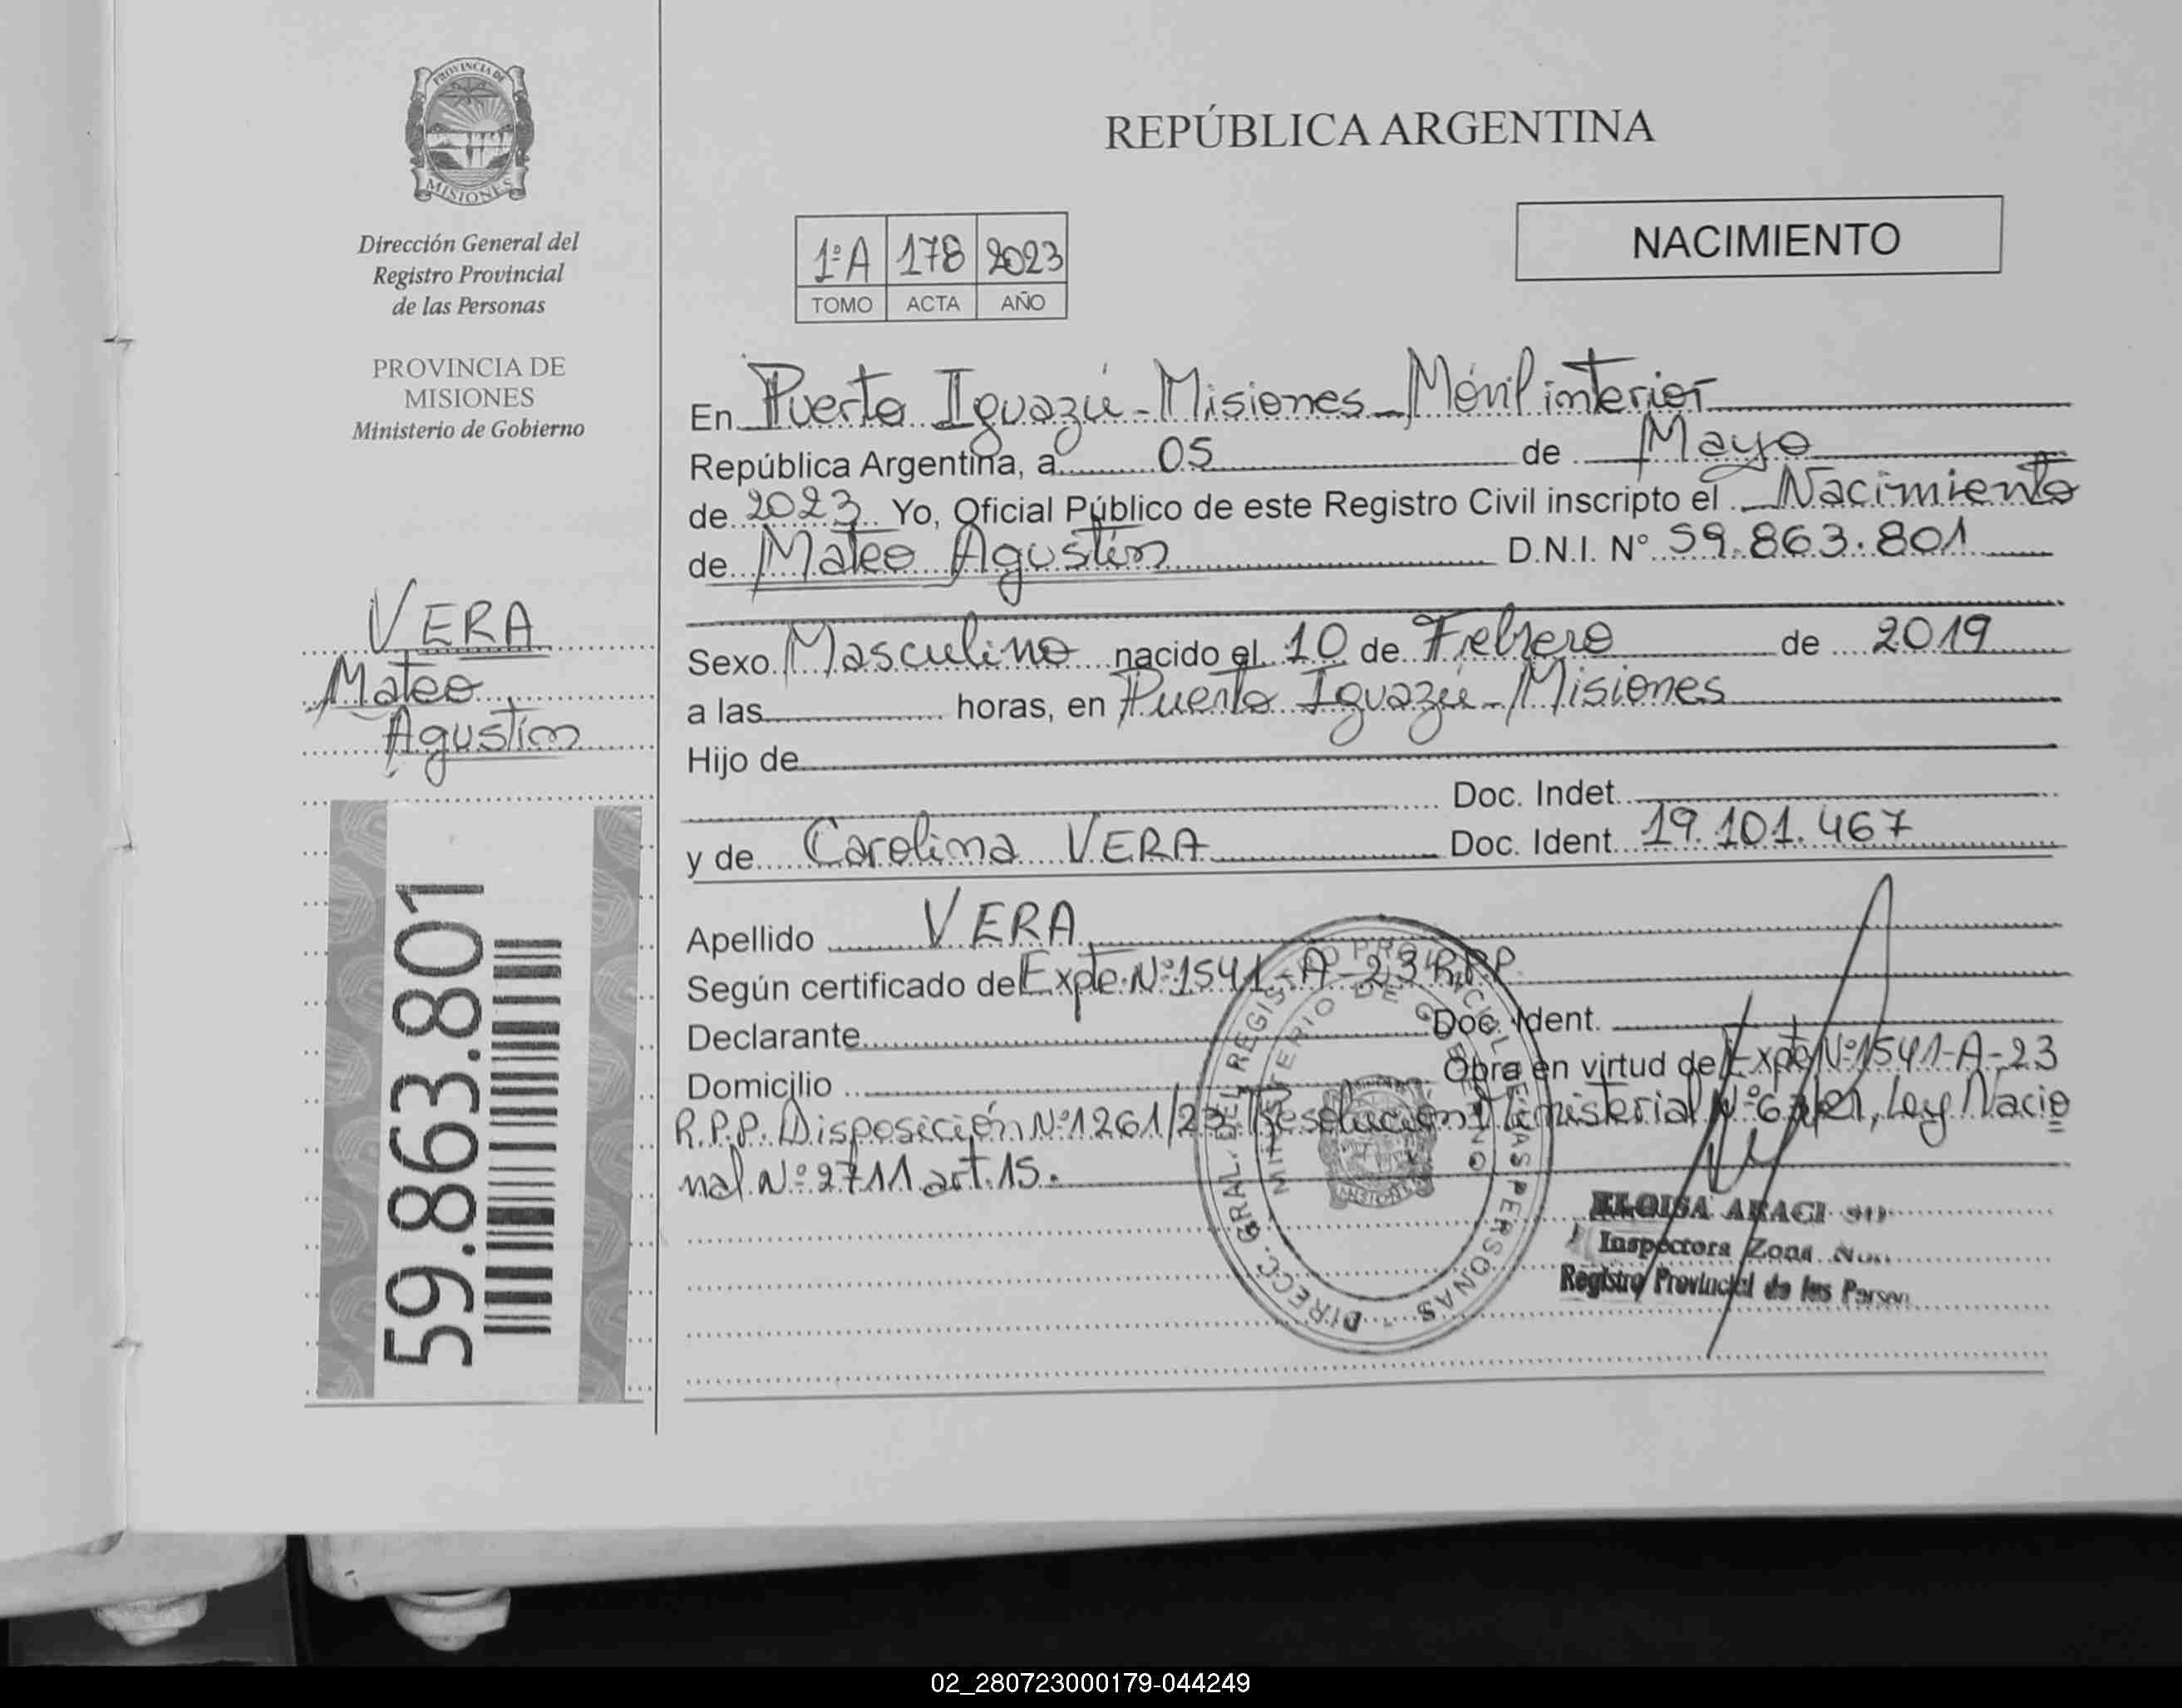 PROVINCIA DE
MISIONES
Dirección General del
Registro Provincial
de las Personas
PROVINCIA DE
MISIONES
Ministerio de Gobierno
VERA
Mateo
Agustín
59.863.801
REPÚBLICA ARGENTINA
NACIMIENTO
1ºA 178 2023
TOMO ACTA AÑO
En Puerto Iguazú - Misiones - Móvil interior
República Argentina, a 05 de Mayo
de 2023 Yo, Oficial Público de este Registro Civil inscripto el Nacimiento
de Mateo Agustín D.N.I. Nº 59.863.801
Sexo Masculino nacido el 10 de Febrero de 2019
a las horas, en Puerto Iguazú - Misiones
Hijo de
Doc. Indet.
y de Carolina VERA Doc. Ident. 19.101.467
Apellido VERA
Según certificado del Expte. Nº 1541-A-23 R.P.P.
Declarante Doc. Ident.
Domicilio Obra en virtud de Expte Nº 1541-A-23
R.P.P. Disposición Nº 1261/23, Resolución Ministerial Nº , Ley Nacio
nal Nº 2711 art. 15.
DIRECC. GRAL. DEL REGISTRO PROVINCIAL DE LAS PERSONAS
MINISTERIO DE GOBIERNO
MISIONES
ELOISA
Inspectora Zona
Registro Provincial de las Person
02_280723000179-044249